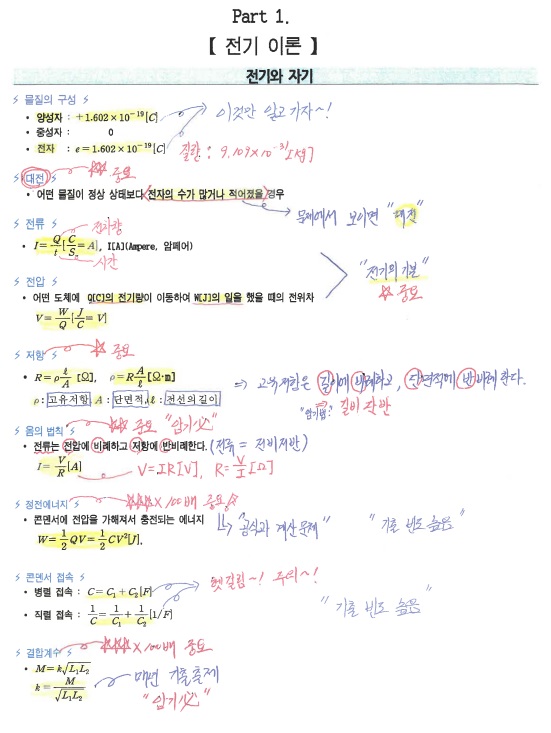 Part 1.
【 전기 이론 】
전기와 자기
⚡ 물질의 구성 ⚡
• 양성자 : +1.602×10⁻¹⁹[C] 이것만 알고가자~!
• 중성자 : 0
• 전자 : e=1.602×10⁻¹⁹[C] 질량 : 9.109×10⁻³¹[kg]
⚡ 대전 ⚡ 중요
• 어떤 물질이 정상 상태보다 전자의 수가 많거나 적어졌을 경우
문제에서 보이면 "대전"
⚡ 전류 ⚡ 전하량
• I=Q/t[C/S=A], I[A](Ampere, 암페어)
시간
"전기의 기본"
☆ 중요
⚡ 전압 ⚡
• 어떤 도체에 Q[C]의 전기량이 이동하여 W[J]의 일을 했을 때의 전위차
V=W/Q[J/C=V]
⚡ 저항 ⚡ ☆ 중요
• R=ρℓ/A [Ω], ρ=RA/ℓ[Ω·m] ⇒ 고유저항은 길이에 비례하고, 단면적에 반비례한다.
ρ : 고유저항, A : 단면적, ℓ : 전선의 길이 "암기법" ⇒ 길비 단반
⚡ 옴의 법칙 ⚡ 중요 "암기必"
• 전류는 전압에 비례하고 저항에 반비례한다. (전류 = 전비저반)
I=V/R[A] V=IR[V], R=V/I[Ω]
⚡ 정전에너지 ⚡ ☆☆☆×100배 중요☆
• 콘덴서에 전압을 가해져서 충전되는 에너지 "공식과 계산문제" "기출 빈도 높음"
W=1/2QV=1/2CV²[J],
⚡ 콘덴서 접속 ⚡ 헷갈림~! 주의~!
• 병렬 접속 : C=C₁+C₂[F]
• 직렬 접속 : 1/C=1/C₁+1/C₂[1/F] "기출 빈도 높음"
⚡ 결합계수 ⚡ ☆☆☆×100배 중요
• M=k√L₁L₂
k=M/√L₁L₂ 매년 기출출제
"암기必"